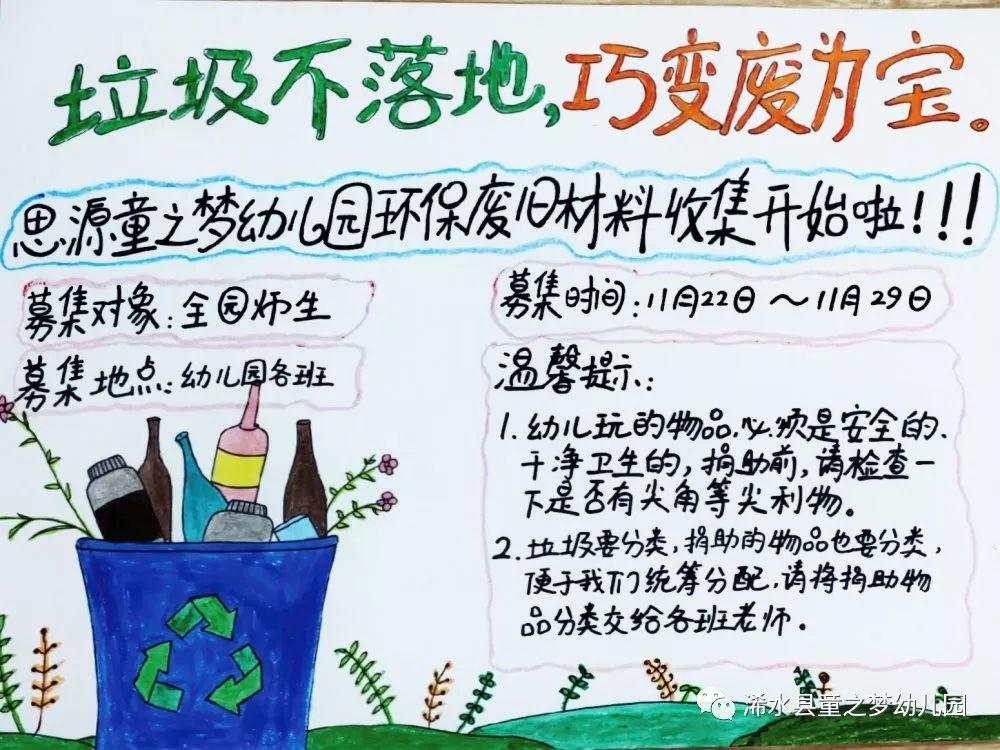 垃圾不落地,巧变废为宝。
思源童之梦幼儿园环保废旧材料收集开始啦!!!
募集对象:全园师生
募集地点:幼儿园各班
募集时间:11月22日～11月29日
温馨提示:
1.幼儿玩的物品,必须是安全的、
干净卫生的,捐助前,请检查一
下是否有尖角等尖利物。
2.垃圾要分类,捐助的物品也要分类,
便于我们统筹分配,请将捐助物
品分类交给各班老师。
浠水县童之梦幼儿园